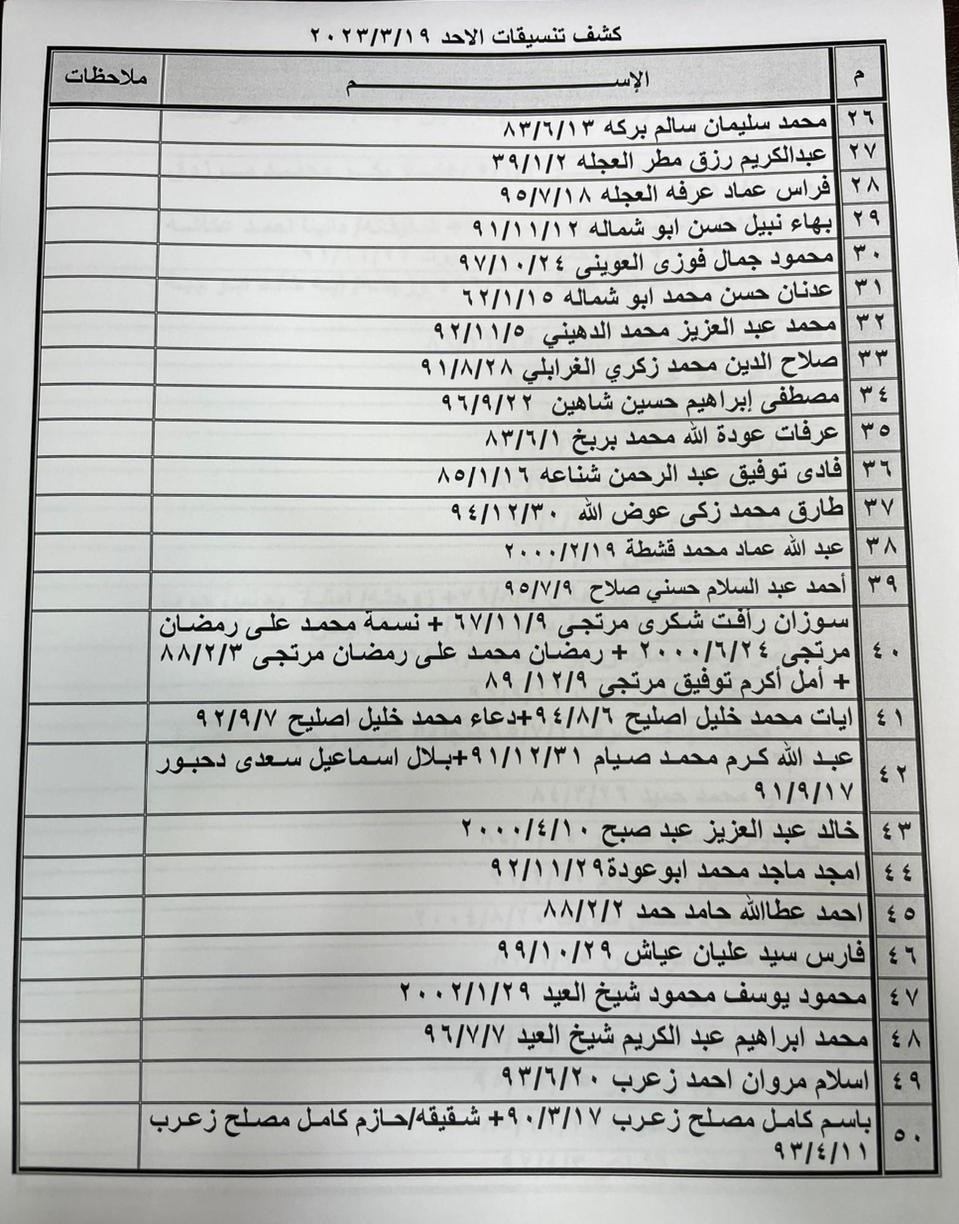 كشف تنسيقات الاحد ٢٠٢٣/٣/١٩
م الإســـــــــم ملاحظات
٢٦ محمد سليمان سالم بركه ٨٣/٦/١٣
٢٧ عبدالكريم رزق مطر العجله ٣٩/١/٢
٢٨ فراس عماد عرفه العجله ٩٥/٧/١٨
٢٩ بهاء نبيل حسن ابو شماله ٩١/١١/١٢
٣٠ محمود جمال فوزى العوينى ٩٧/١٠/٢٤
٣١ عدنان حسن محمد ابو شماله ٦٢/١/١٥
٣٢ محمد عبد العزيز محمد الدهيني ٩٢/١١/٥
٣٣ صلاح الدين محمد زكري الغرابلي ٩١/٨/٢٨
٣٤ مصطفى إبراهيم حسين شاهين ٩٦/٩/٢٢
٣٥ عرفات عودة الله محمد بربخ ٨٣/٦/١
٣٦ فادى توفيق عبد الرحمن شناعه ٨٥/١/١٦
٣٧ طارق محمد زكى عوض الله ٩٤/١٢/٣٠
٣٨ عبد الله عماد محمد قشطة ٢٠٠٠/٢/١٩
٣٩ أحمد عبد السلام حسني صلاح ٩٥/٧/٩
سوزان رأفت شكرى مرتجى ٦٧/١١/٩ + نسمة محمد على رمضان
٤٠ مرتجى ٢٠٠٠/٦/٢٤ + رمضان محمد على رمضان مرتجى ٨٨/٢/٣
+ أمل أكرم توفيق مرتجى ٨٩/١٢/٩
٤١ ايات محمد خليل اصليح ٩٤/٨/٦+دعاء محمد خليل اصليح ٩٢/٩/٧
٤٢ عبد الله كرم محمد صيام ٩١/١٢/٣١+بلال اسماعيل سعدى دحبور
٩١/٩/١٧
٤٣ خالد عبد العزيز عبد صبح ٢٠٠٠/٤/١٠
٤٤ امجد ماجد محمد ابوعودة٩٢/١١/٢٩
٤٥ احمد عطاالله حامد حمد ٨٨/٢/٢
٤٦ فارس سيد عليان عياش ٩٩/١٠/٢٩
٤٧ محمود يوسف محمود شيخ العيد ٢٠٠٢/١/٢٩
٤٨ محمد ابراهيم عبد الكريم شيخ العيد ٩٦/٧/٧
٤٩ اسلام مروان احمد زعرب ٩٣/٦/٢٠
٥٠ باسم كامل مصلح زعرب ٩٠/٣/١٧+ شقيقه/حازم كامل مصلح زعرب
٩٣/٤/١١